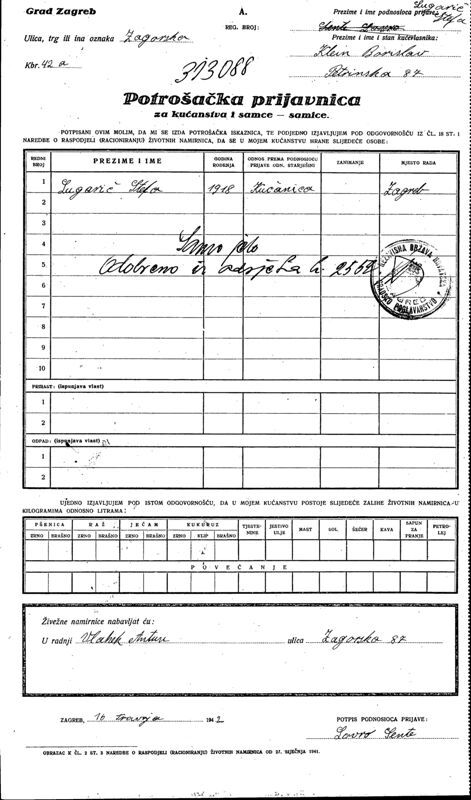 Grad Zagreb
A.
Prezime i ime podnosioca prijave: Lugarić Štefa
REG. BROJ:
Ulica, trg ili ina oznaka Zagorska
Prezime i ime i stan kućevlasnika:
Klein Borislav
Kbr. 42 a
Petrinska 87
393088
Potrošačka prijavnica
za kućanstva i samce — samice.
POTPISANI OVIM MOLIM, DA MI SE IZDA POTROŠAČKA ISKAZNICA, TE PODJEDNO IZJAVLJUJEM POD ODGOVORNOŠĆU IZ ČL. 18 ST. 1
NAREDBE O RASPODJELI (RACIONIRANJU) ŽIVOTNIH NAMIRNICA, DA SE U MOJEM KUĆANSTVU HRANE SLIJEDEĆE OSOBE:
REDNI BROJ PREZIME I IME GODINA ROĐENJA ODNOS PREMA PODNOSIOCU PRIJAVE ODN. STARJEŠINI ZANIMANJE MJESTO RADA
1 Lugarić Štefa 1918 Kućanica Zagreb
2
3
4 Samo jelo
5 Odobreno iz odsjeka
6
7
8
9
10
PRIRAST: (ispunjava vlast)
1
2
OTPAD: (ispunjava vlast)
1
2
UJEDNO IZJAVLJUJEM POD ISTOM ODGOVORNOŠĆU, DA U MOJEM KUĆANSTVU POSTOJE SLIJEDEĆE ZALIHE ŽIVOTNIH NAMIRNICA U
KILOGRAMIMA ODNOSNO LITRAMA:
PŠENICA RAŽ JEČAM KUKURUZ TJESTENINE JESTIVO ULJE MAST SOL ŠEĆER KAVA SAPUN ZA PRANJE PETROLEJ
ZRNO BRAŠNO ZRNO BRAŠNO ZRNO BRAŠNO ZRNO KLIP BRAŠNO
POVEĆANJE
Živežne namirnice nabavljat ću:
U radnji Vlahek Antun ulica Zagorska 87
ZAGREB, 10 travnja 1942
POTPIS PODNOSIOCA PRIJAVE:
Lovro Sente
OBRAZAC K ČL. 2 ST. 3 NAREDBE O RASPODJELI (RACIONIRANJU) ŽIVOTNIH NAMIRNICA OD 27. SIJEČNJA 1941.